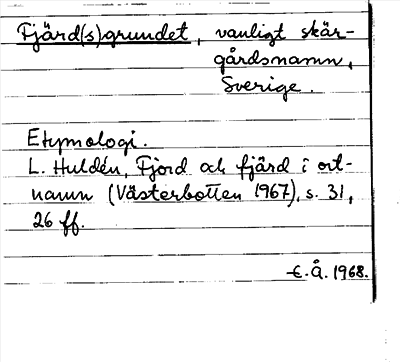 Fjärd(s)grundet, vanligt skär-
gårdsnamn,
Sverige.
Etymologi.
L. Huldén, Fjord och fjärd i ort-
namn (Västerbotten 1967), s. 31,
26 ff.
E.Å. 1968.